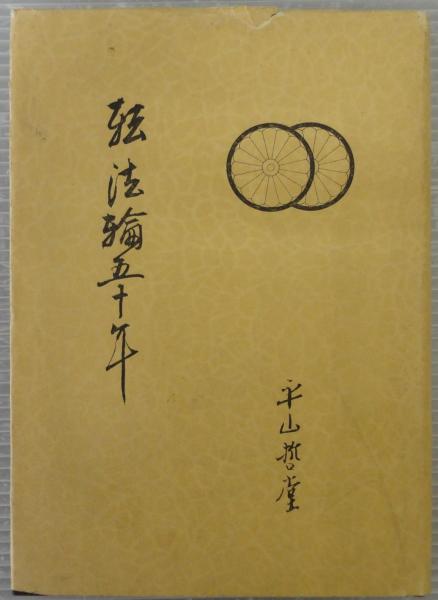 転法輪五十年
平山哲堂